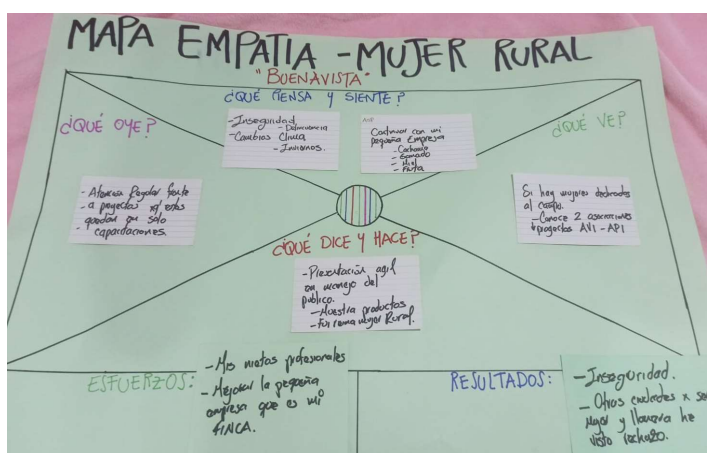 MAPA EMPATIA - MUJER RURAL
"BUENAVISTA"
¿QUÉ PIENSA Y SIENTE?
- Inseguridad.
- Delincuencia
- Cambios Clima
- Inviernos.
Continuar con mi
pequeña Empresa
- Ganado
- Miel
- Fruta
¿QUÉ OYE?
- Atención Regular frente
a proyectos xq' estos
quedan en solo
- capacitaciones.
¿QUÉ VE?
Si hay mujeres dedicadas
al campo.
- Conoce 2 asociaciones
proyectos AVI - API
¿QUÉ DICE Y HACE?
- Presentación agil
en manejo del
publico.
- Muestra productos
- Fui reina mujer Rural.
ESFUERZOS:
- Mis metas profesionales
- Mejorar la pequeña
empresa que es mi
FINCA.
RESULTADOS:
- Inseguridad.
- Otras entidades x ser
mujer y llanera he
visto rechazo.